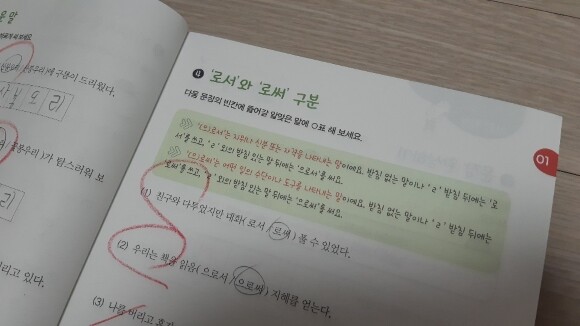 ④ '로서'와 '로써' 구분
다음 문장의 빈칸에 들어갈 알맞은 말에 ○표 해 보세요.
'(으)로서'는 지위나 신분 또는 자격을 나타내는 말이에요. 받침 없는 말이나 'ㄹ' 받침 뒤에는 '로
서'를 쓰고, 'ㄹ' 외의 받침 있는 말 뒤에는 '으로서'를 써요.
'(으)로써'는 어떤 일의 수단이나 도구를 나타내는 말이에요. 받침 없는 말이나 'ㄹ' 받침 뒤에는
'로써'를 쓰고, 'ㄹ' 외의 받침 있는 말 뒤에는 '으로써'를 써요.
(1) 친구와 다투었지만 대화( 로서 / 로써 ) 풀 수 있었다.
(2) 우리는 책을 읽음( 으로서 / 으로써 ) 지혜를 얻는다.
(3) 나를 버리고
01
말
에 구름이 드리웠다.
리
봉우리 )가 탐스러워 보
리고 있다.